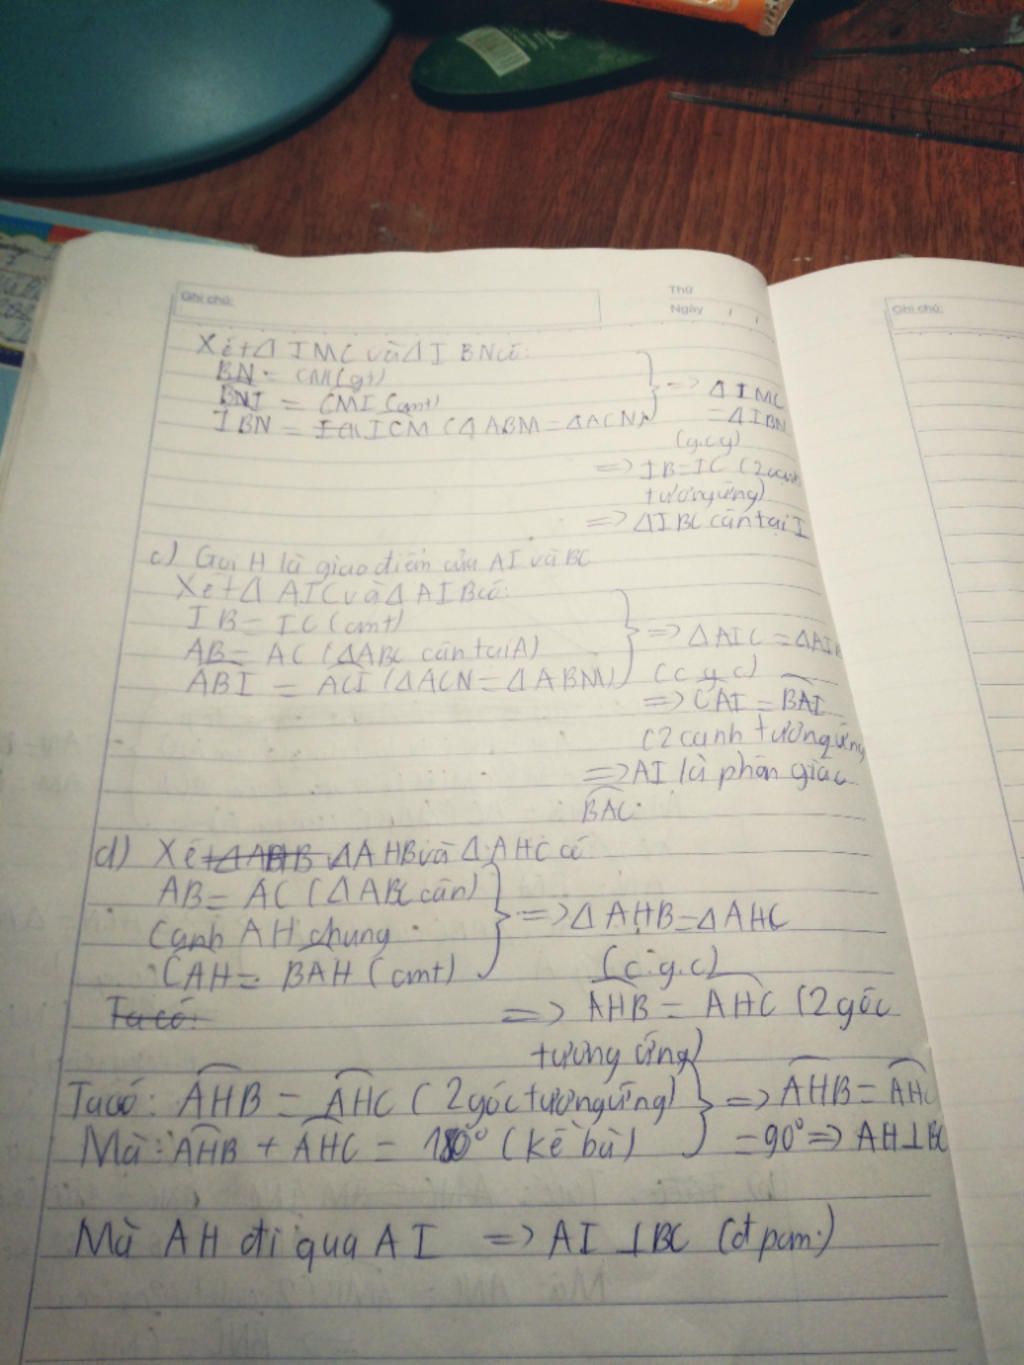 Ghi chú:
Thứ
Ngày / /
Ghi chú:
Xét Δ IMC và Δ I BN có:
BN = CM (gt)
BNI = CMI (cmt)
IBN = ICM (Δ ABM = Δ ACN)
=> Δ IMC
= Δ IBN
(g.c.g)
=> IB = IC (2 cạnh
tương ứng)
=> Δ IBC cân tại I
c) Gọi H là giao điểm của AI và BC
Xét Δ AIC và Δ AIB có:
IB = IC (cmt)
AB = AC (Δ ABC cân tại A)
ABI = ACI (Δ ACN = Δ ABM)
=> Δ AIC = Δ AIB
(c.g.c)
=> CAI = BAI
(2 cạnh tương ứng
=> AI là phân giác
BAC.
d) Xét Δ AHB và Δ AHC có
AB = AC (Δ ABC cân)
Cạnh AH chung
CAH = BAH (cmt)
=> Δ AHB = Δ AHC
(c.g.c)
Ta có:
=> AHB = AHC (2 góc
tương ứng)
Ta có: AHB = AHC (2 góc tương ứng)
Mà: AHB + AHC = 180° (kề bù)
=> AHB = AHC
= 90° => AH ⊥ BC
Mà AH đi qua AI => AI ⊥ BC (đpcm.)